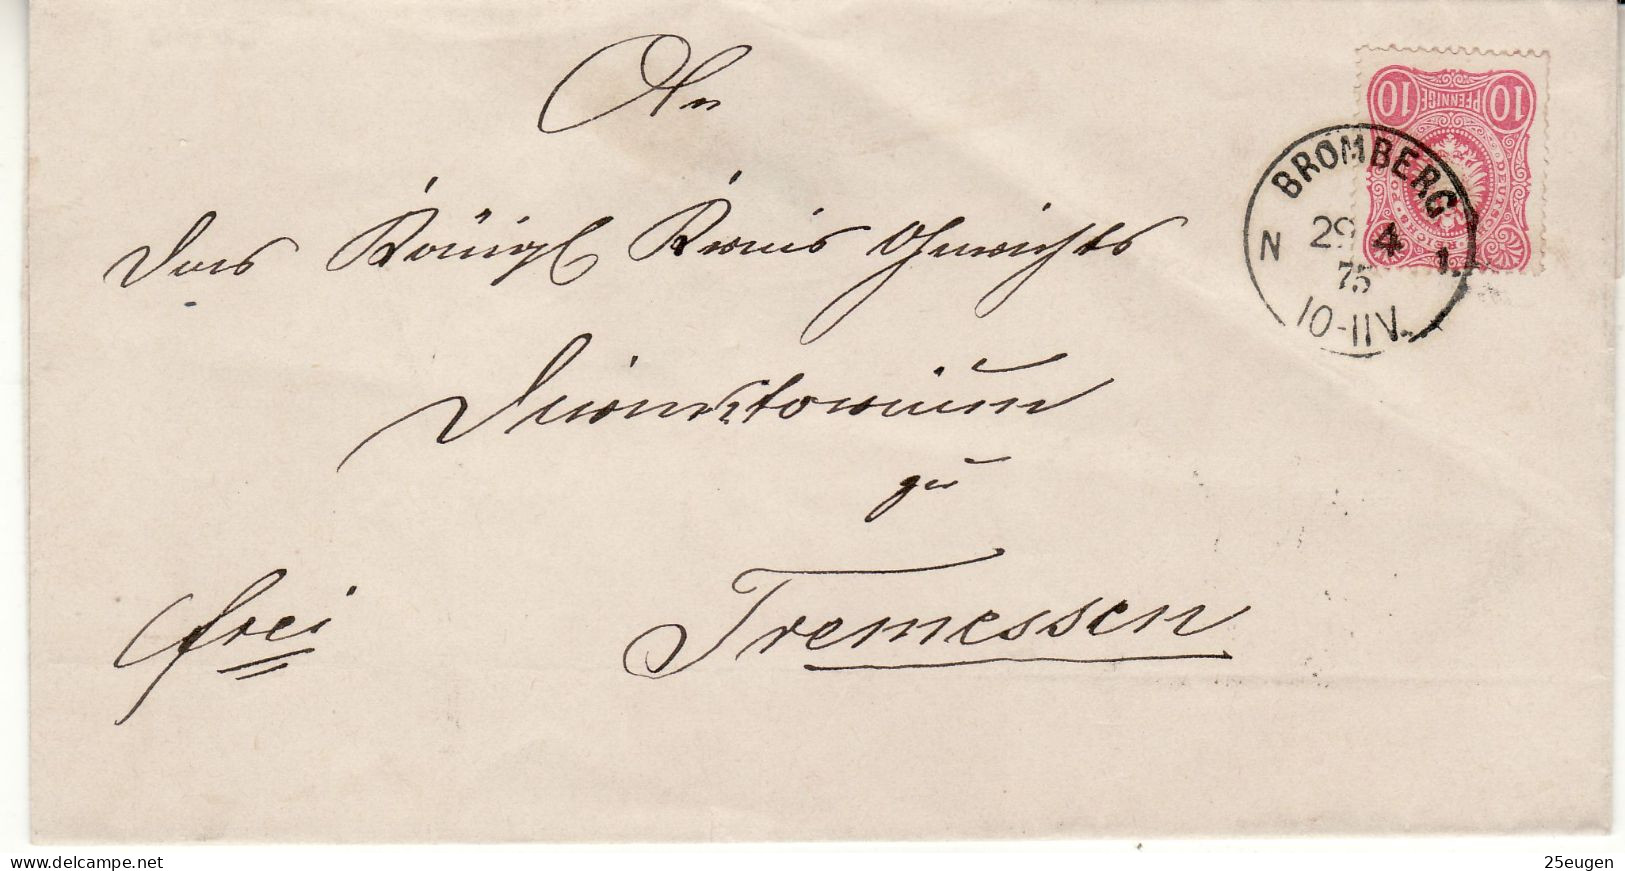 An
das Königl Kreis Gerichts
Direktorium
zu
Tremessen
frei
10 PFENNIGE 10
DEUTSCHE REICHS-POST
BROMBERG
N 29 4 1.
75
10-11V.
www.delcampe.net
25eugen